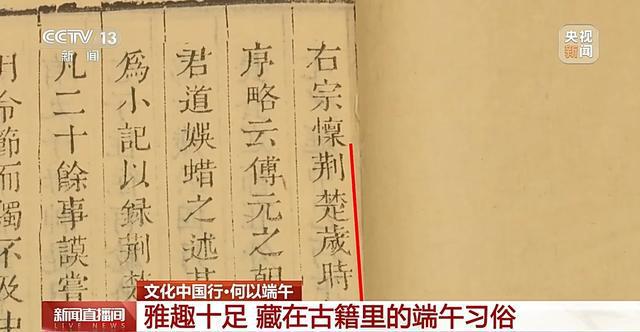 CCTV 13
新闻
央视
新闻
右宗懍荆楚歲時
序略云傅元之朝
君道娛蜡之述
爲小記以録荆楚
凡二十餘事謨嘗
月令節而獨不及
文化中国行·何以端午
新闻直播间
雅趣十足 藏在古籍里的端午习俗